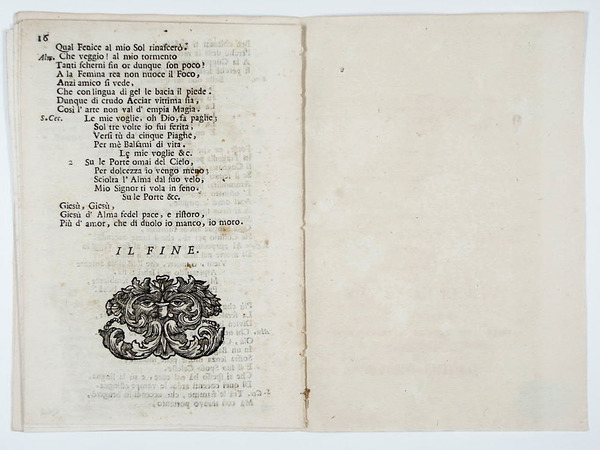 16
Qual Fenice al mio Sol rinascerò.
Alm. Che veggio! al mio tormento
Tanti scherni sin or dunque son poco!
A la Femina rea non nuoce il Foco,
Anzi amico si vede,
Che con lingua di gel le bacia il piede.
Dunque di crudo Acciar vittima sia,
Così l' arte non val d' empia Magia.
S.Cec. Le mie voglie, oh Dio, fà paghe;
Sol tre volte io fui ferita,
Versi tù da cinque Piaghe,
Per mè Balsami di vita.
Le mie voglie &c.
2 Su le Porte omai del Cielo,
Per dolcezza io vengo meno;
Sciolta l' Alma dal suo velo,
Mio Signor ti vola in seno.
Su le Porte &c.
Giesù, Giesù,
Giesù d' Alma fedel pace, e ristoro,
Più d' amor, che di duolo io manco, io moro.
IL FINE.